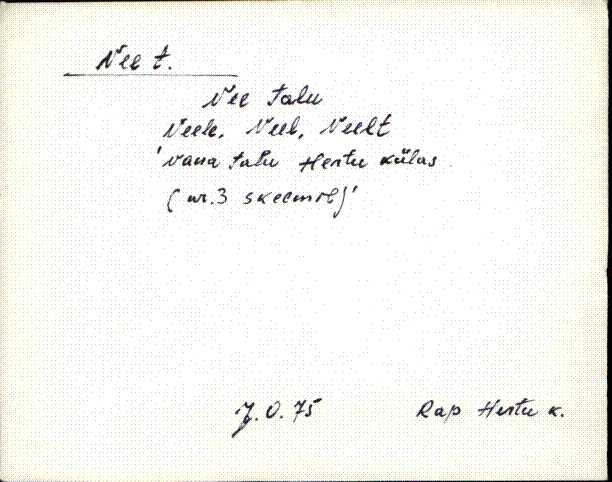 Nee t.
Nee talu
Neele, Neel, Neelt
'vana talu Hertu külas
(nr. 3 skeemil)'
J. O. 75 Rap Hertu k.